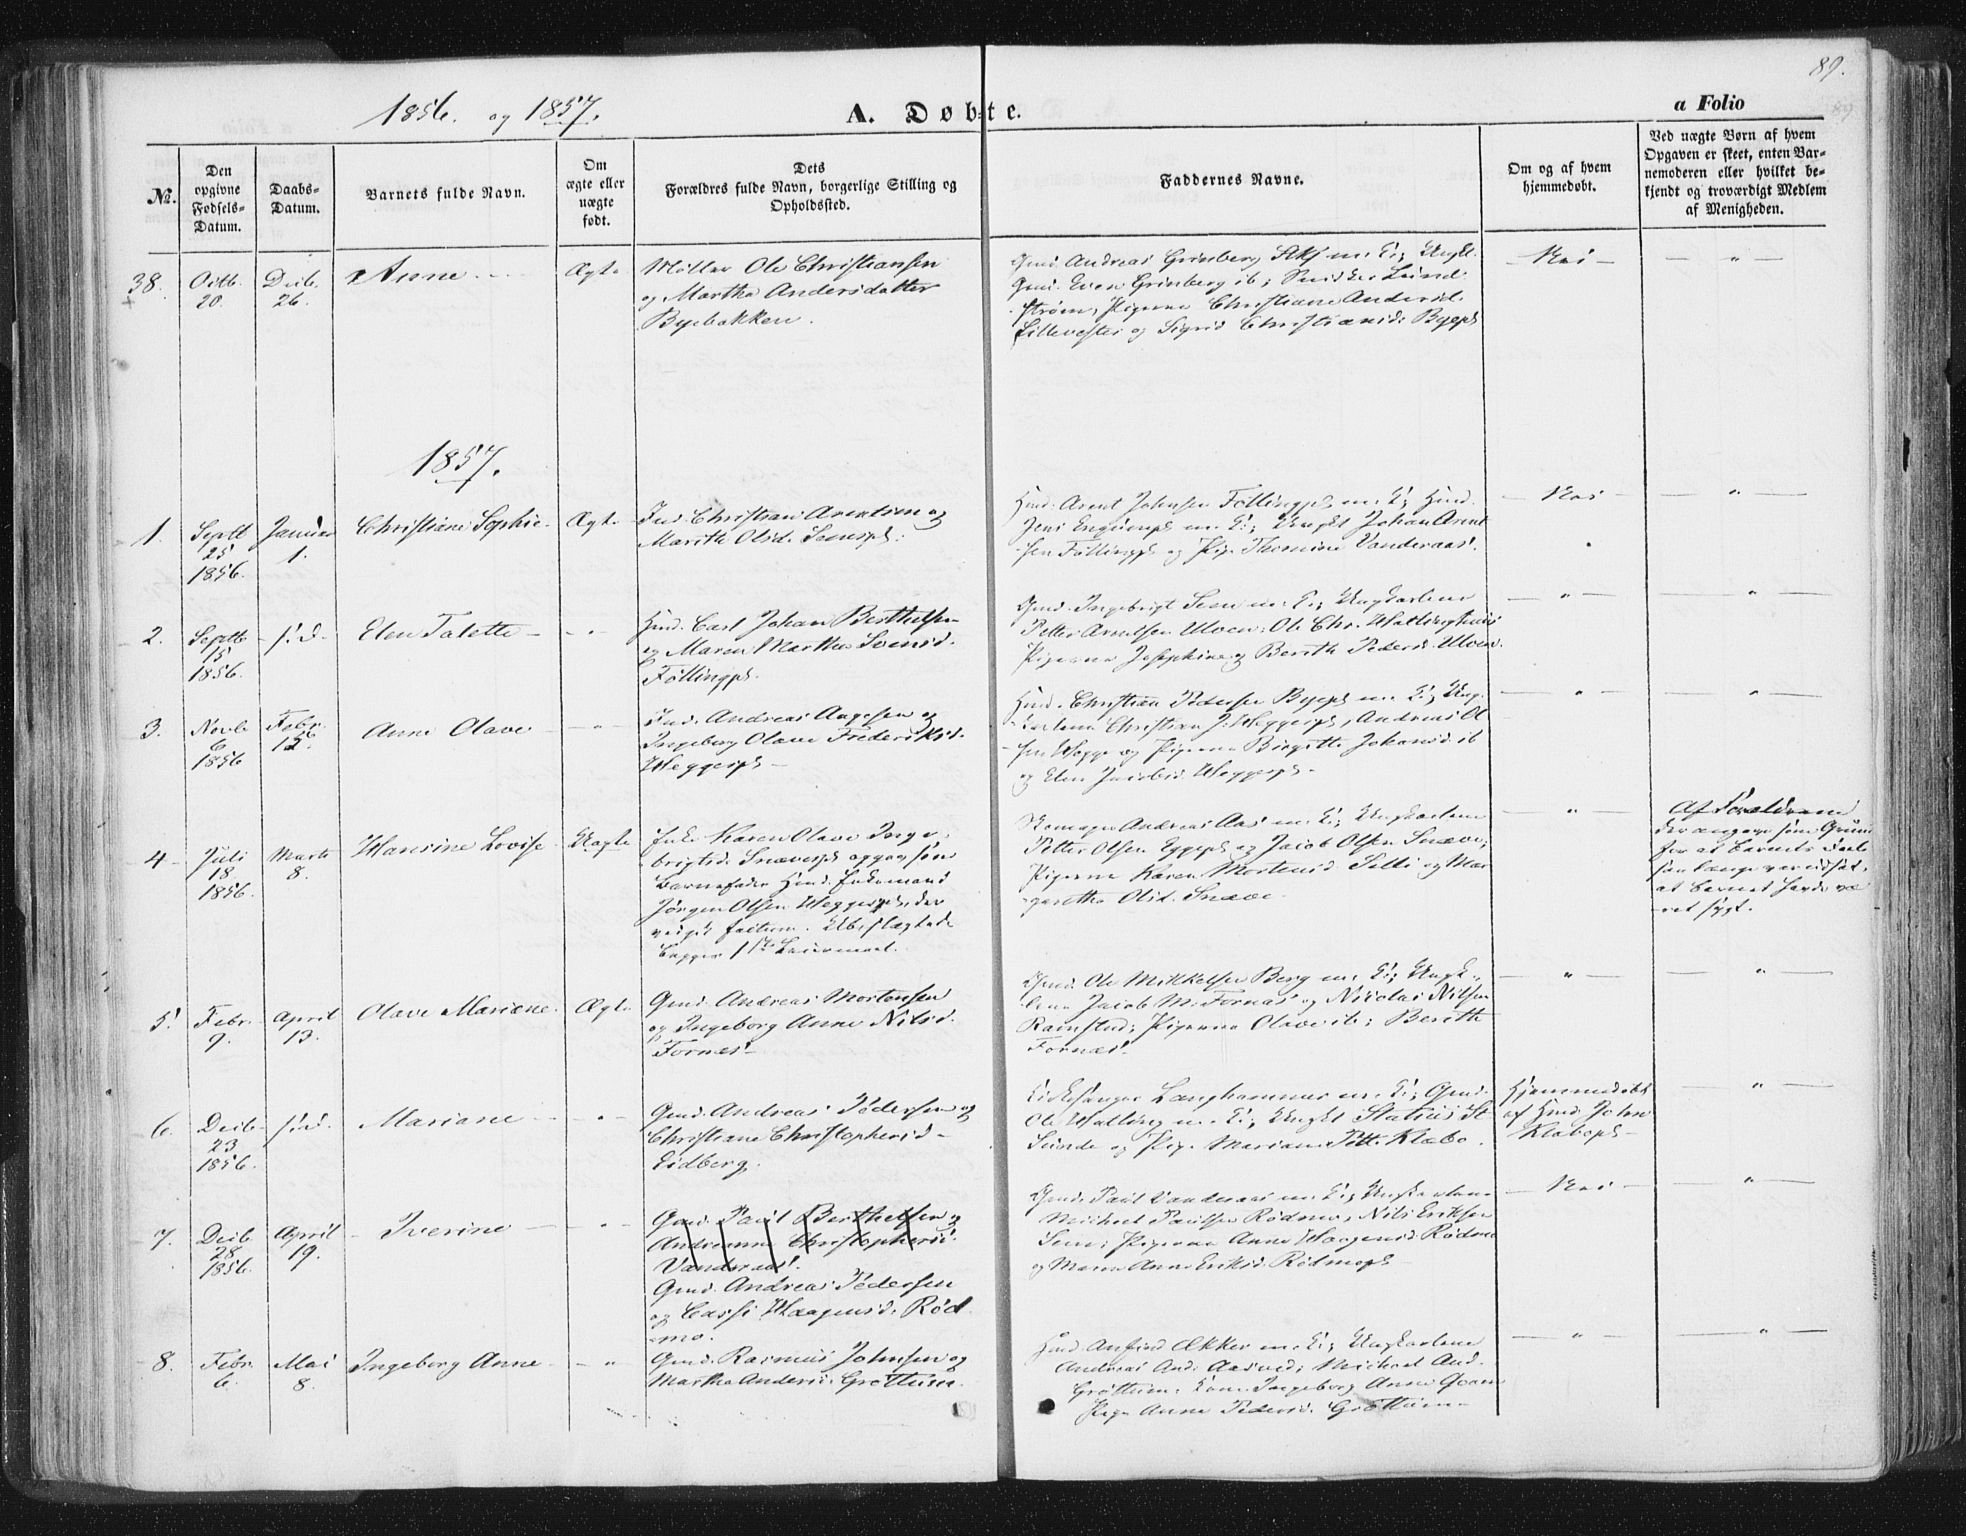 89.
1856. og 1857.
A. Døbte.
a Folio
No.
Den opgivne Fødsels-Datum.
Daabs-Datum.
Barnets fulde Navn.
Om ægte eller uægte født.
Dets Forældres fulde Navn, borgerlige Stilling og Opholdssted.
Faddernes Navne.
Om og af hvem hjemmedøbt.
Ved uægte Børn af hvem Opgaven er skeet, enten Barnemoderen eller hvilket bekjendt og troværdigt Medlem af Menigheden.
38. Octb. 20. Decb. 26. Anne Ægte
Møller Ole Christiansen
og Martha Andersdatter
Byebakken.
Gmd. Andreas Grinberg
Gmd. Even Grinberg ib;
strøm; Pigerne Christiane Andersd.
Lillevester og Sigrid Christiansd. Byepl
Nei
"
1857.
1. Septb 25 1856. Januar 1. Christiane Sophie Ægte
Ind. Christian Arentsen og
Mareth Olsd. Semspl.
Huusm. Arnt Johnsen Føllingpl m. K;
Jens m. K; Ungkl Johan Arnt
sen Føllingpl og Pige Thomine Vanderaas.
Nei
"
2. Septb. 15 1856. s.d. Elen Talette "
Huusm. Carl Johan Berthelsen
og Maren Martha Svensd.
Føllingpl.
Gmd. Ingebrigt Sem m. K; Ungkarlene
Petter Arntsen Uloen, Ole Chr.
Pigerne Josephine og Bereth Pedersd. Uloen.
"
"
3. Novb. 6 1856 Febr. 15. Anne Olave "
Ind. Andreas Aagesen og
Ingeborg Olave Frederiksd.
Weggespl
Huusm. Christian Pedersen Byepl m. K; Ung-
karlene Christian J. Weggespl, Andreas Ol
sen Wegge og Pigerne Birgitte Johansd. ib
og Elen Jacobsd. Weggespl.
"
"
4 Juli 18 1856. Marts 8. Hansine Lovise Uægte
Karen Olave Inge-
brigtsd. Snævespl opgav som
Barnefader
Jørgen Olsen Weggespl, der
factum.
1ste Leiermaal.
Andreas Aas m. K; Ungkarlene
Petter Olsen Eggepl og Jacob Olsen Snæve;
Pigerne Karen Mortensd. Selli og Mar
garetha Olsd. Snæve.
"
Af Forældrene
der angave som Grund
for at Barnets Daab
saa længe var udsat,
at Barnet havde væ
ret sygt.
5. Febr. 9. April 13. Olave Mariane Ægte
Gmd. Andreas Mortensen
og Ingeborg Anne Nilsd.
Fornæs
Gmd. Ole Mikkelsen Berg m. K; Ungk-
lene Jacob M. Fornæs og Nicolai Nilsen
Ramstad; Pigerne Olave ib; Bereth
Fornæs.
"
"
6. Decb. 23 1856. s.d. Mariane "
Gmd. Andreas Pedersen og
Christiane Christophersd
Eidberg.
Kirkesanger Langhammer m. K; Gmd.
Ole m. K; Ungkl Statius St.
Sunde og Pige Mariane Klæbo.
Hjemmedøbt
af Huusm. John
Klæbopl
"
7. Decb. 28 1856. April 19. Iverine "
Gmd. Paul Berthelsen og
Andreanna Christophersd.
Vanderaas.
Gmd. Andreas Pedersen
og Haagensd. Rød
mo.
Gmd. Paul Vanderaas m. K; Ungkarlene
Michael Paulsen Rødmo, Nils Eriksen
Sem; Pigerne Anne Haagensd. Rødmo
og Maren Anne Eriksd. Rødmopl
Nei
"
8. Febr. 6. Mai 8. Ingeborg Anne "
Gmd. Rasmus Johnsen og
Martha Andersd. Grøttum.
Huusm. Anfind Ækker m. K; Ungkarlene
Andreas And. Michael And.
Grøttum, Kone Ingeborg Anne Qvam
Pige Anne Pedersd. Grøttum
"
"